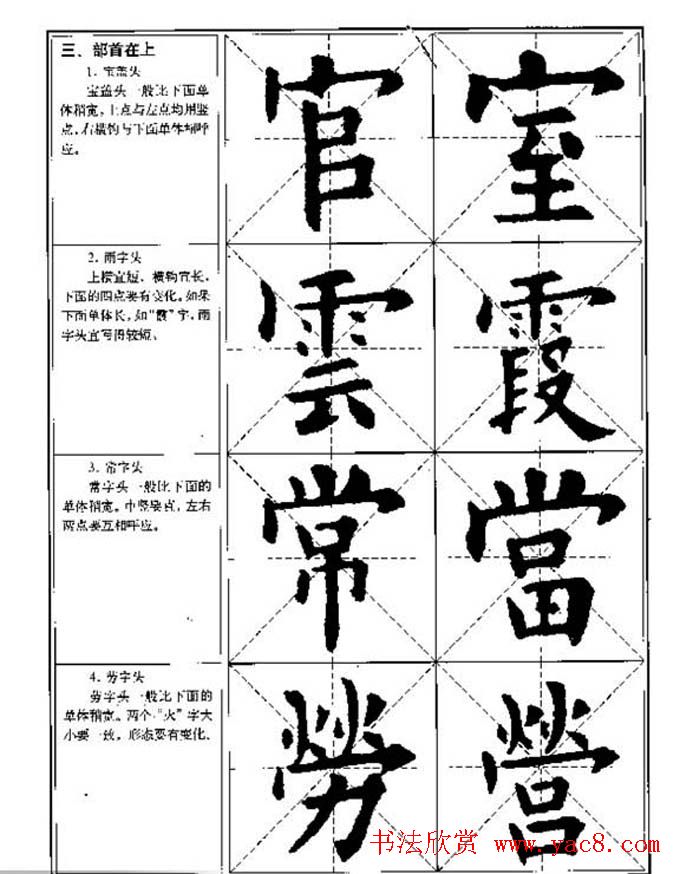 三、部首在上
1. 宝盖头
宝盖头一般比下面单
体稍宽。上点与左点均用竖
点，右横钩与下面单体相呼
应。
官 室
2. 雨字头
上横宜短，横钩宜长，
下面的四点要有变化。如果
下面单体长，如“霞”字，雨
字头宜写得较短。
雲 霞
3. 常字头
常字头一般比下面的
单体稍宽。中竖要点，左右
两点要互相呼应。
常 當
4. 劳字头
劳字头一般比下面的
单体稍宽。两个“火”字大
小要一致，形态要有变化。
勞 營
书法欣赏 www.yac8.com